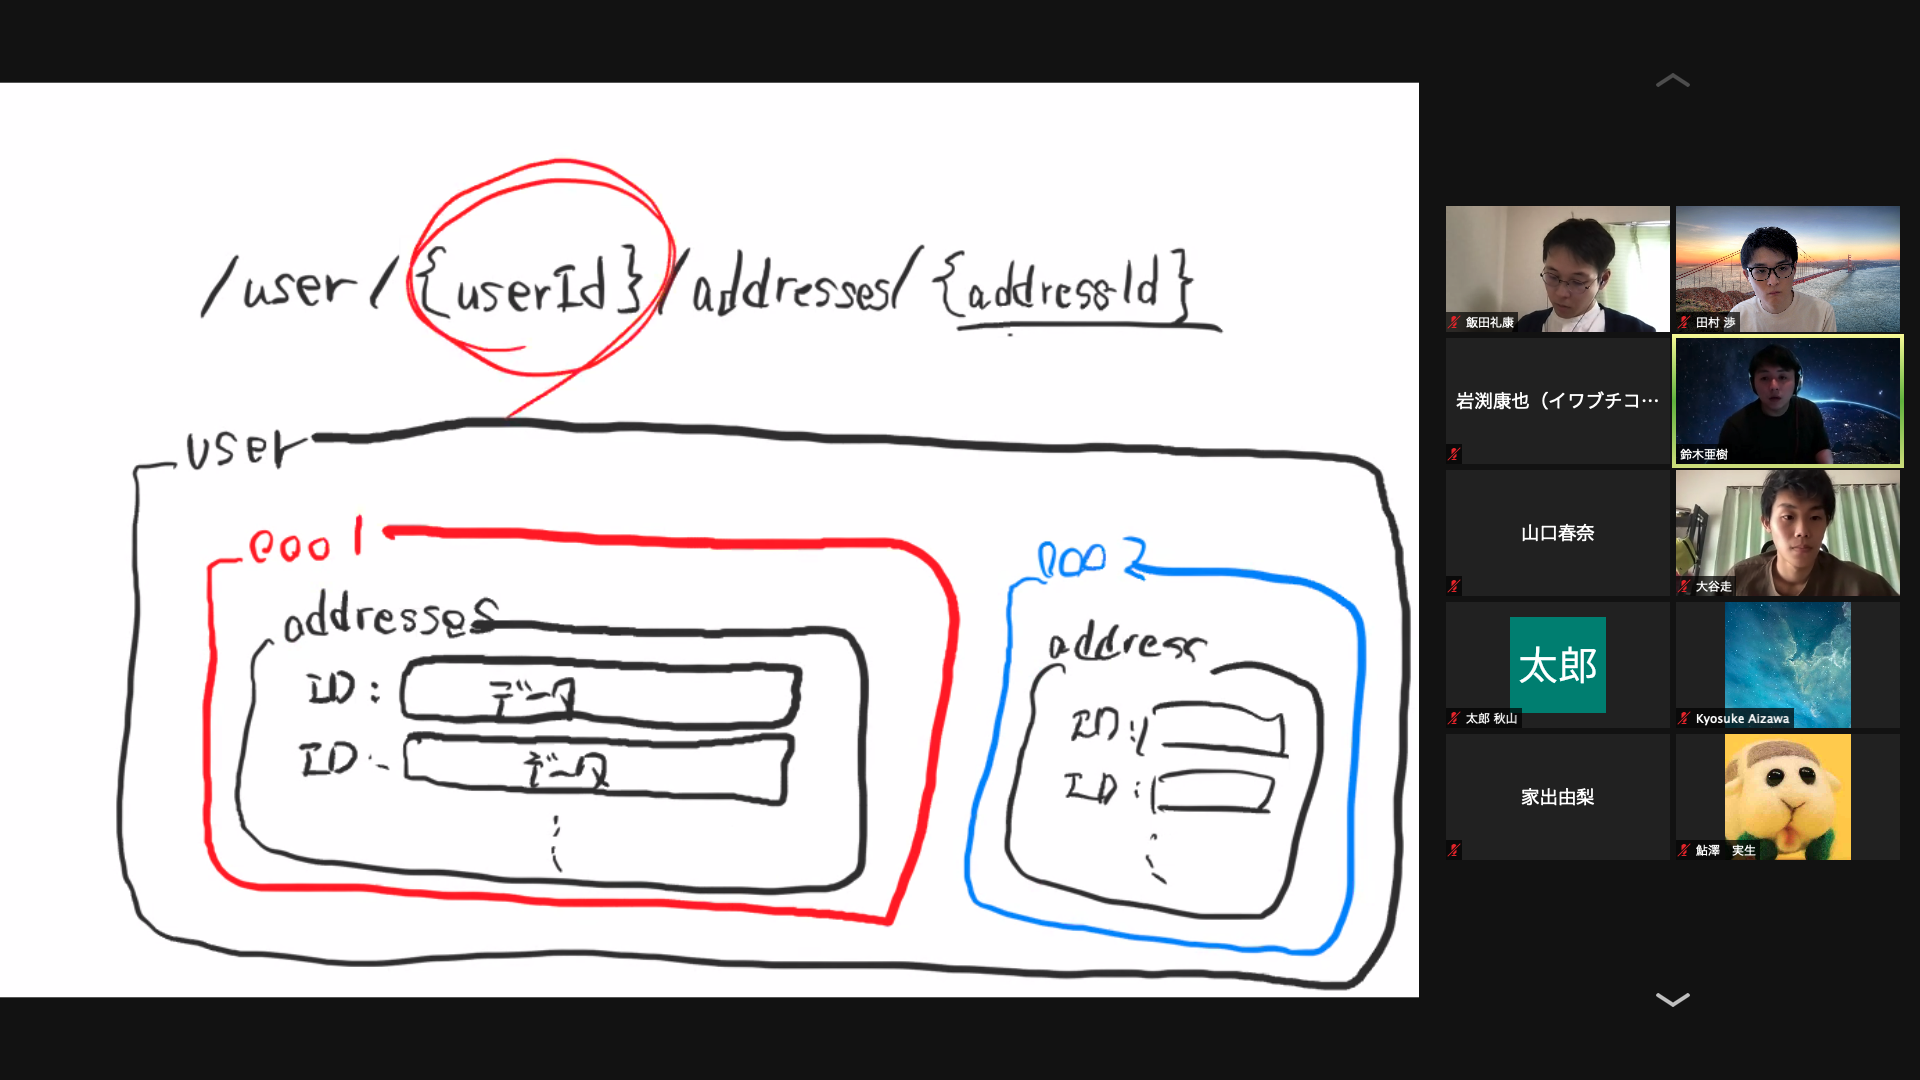 /user/{userId}/addresses/{addressId}
user
0001
addresses
ID: データ
ID: データ
0002
address
ID:
ID:
飯田礼康
田村 渉
岩渕康也（イワブチコ…
鈴木亜樹
山口春奈
大谷走
太郎
太郎 秋山
Kyosuke Aizawa
家出由梨
鮎澤 実生